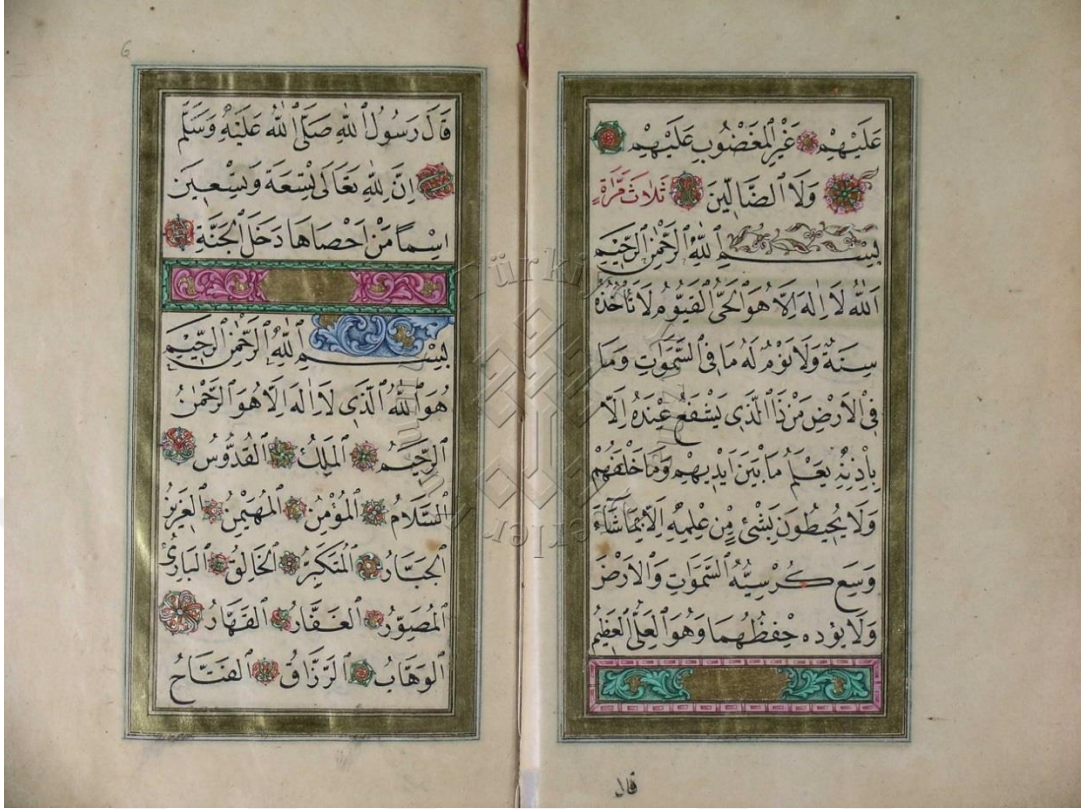 عَلَيْهِمْ غَيْرِ الْمَغْضُوبِ عَلَيْهِمْ
وَلَا الضَّالِّينَ ثَلَاثَ مَرَّاةٍ
بِسْمِ اللّٰهِ الرَّحْمٰنِ الرَّحِيمِ
اَللّٰهُ لَا اِلٰهَ اِلَّا هُوَ الْحَيُّ الْقَيُّومُ لَا تَأْخُذُهُ
سِنَةٌ وَلَا نَوْمٌ لَهُ مَا فِي السَّمٰوَاتِ وَمَا
فِي الْاَرْضِ مَنْ ذَا الَّذِي يَشْفَعُ عِنْدَهُ اِلَّا
بِاِذْنِهِ يَعْلَمُ مَا بَيْنَ اَيْدِيهِمْ وَمَا خَلْفَهُمْ
وَلَا يُحِيطُونَ بِشَيْءٍ مِنْ عِلْمِهِ اِلَّا بِمَا شَاءَ
وَسِعَ كُرْسِيُّهُ السَّمٰوَاتِ وَالْاَرْضَ
وَلَا يَؤُدُهُ حِفْظُهُمَا وَهُوَ الْعَلِيُّ الْعَظِيمُ
قال
6
قَالَ رَسُولُ اللّٰهِ صَلَّى اللّٰهُ عَلَيْهِ وَسَلَّمَ
اِنَّ لِلّٰهِ تَعَالَى تِسْعَةً وَتِسْعِينَ
اِسْمًا مَنْ اَحْصَاهَا دَخَلَ الْجَنَّةَ
بِسْمِ اللّٰهِ الرَّحْمٰنِ الرَّحِيمِ
هُوَ اللّٰهُ الَّذِي لَا اِلٰهَ اِلَّا هُوَ الرَّحْمٰنُ
الرَّحِيمُ الْمَلِكُ الْقُدُّوسُ
السَّلَامُ الْمُؤْمِنُ الْمُهَيْمِنُ الْعَزِيزُ
الْجَبَّارُ الْمُتَكَبِّرُ الْخَالِقُ الْبَارِئُ
الْمُصَوِّرُ الْغَفَّارُ الْقَهَّارُ
الْوَهَّابُ الرَّزَّاقُ الْفَتَّاحُ